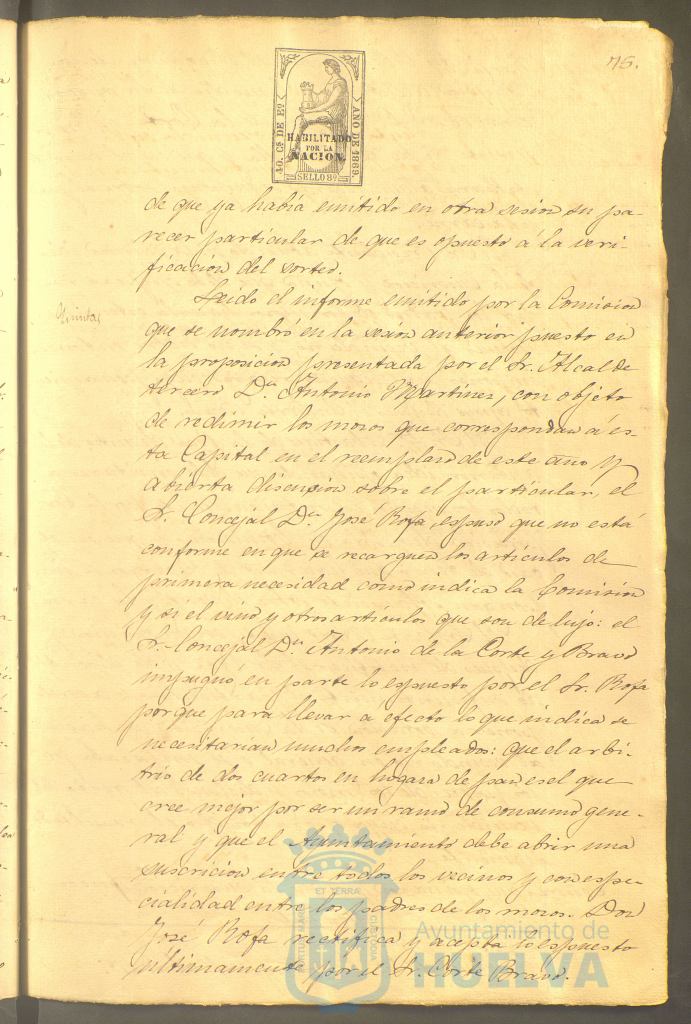 75.
40. Cs. DE Eo.
AÑO DE 1869.
HABILITADO
POR LA
NACION.
SELLO 8º
de que ya habia emitido en otra sesion su pa-
recer particular de que es opuesto á la veri-
ficacion del sorteo.
Quintas
Leido el informe emitido por la Comision
que se nombró en la sesion anterior puesto en
la proposicion presentada por el Sr. Alcalde
tercero Dn. Antonio Martinez, con objeto
de redimir los mozos que correspondan á és-
ta Capital en el reemplazo de este año y
abierta discusion sobre el particular, el
Sr. Concejal Dn. José Rofa, espuso que no está
conforme en que se recarguen los artículos de
primera necesidad como indica la Comision
y si el vino y otros artículos que son de lujo: el
Sr. Concejal Dn. Antonio de la Corte y Bravo
impugnó en parte lo espuesto por el Sr. Rofa
porque para llevar a efecto lo que indica se
necesitarian muchos empleados: que el arbi-
trio de dos cuartos en hogaza de pan es el que
cree mejor por ser un ramo de consumo gene-
ral y que el Ayuntamiento debe abrir una
suscricion entre todos los vecinos y con espe-
cialidad entre los padres de los mozos. Don
José Rofa rectifica y acepta lo espuesto
ultimamente por el Sr. Corte Bravo.
Ayuntamiento de
HUELVA